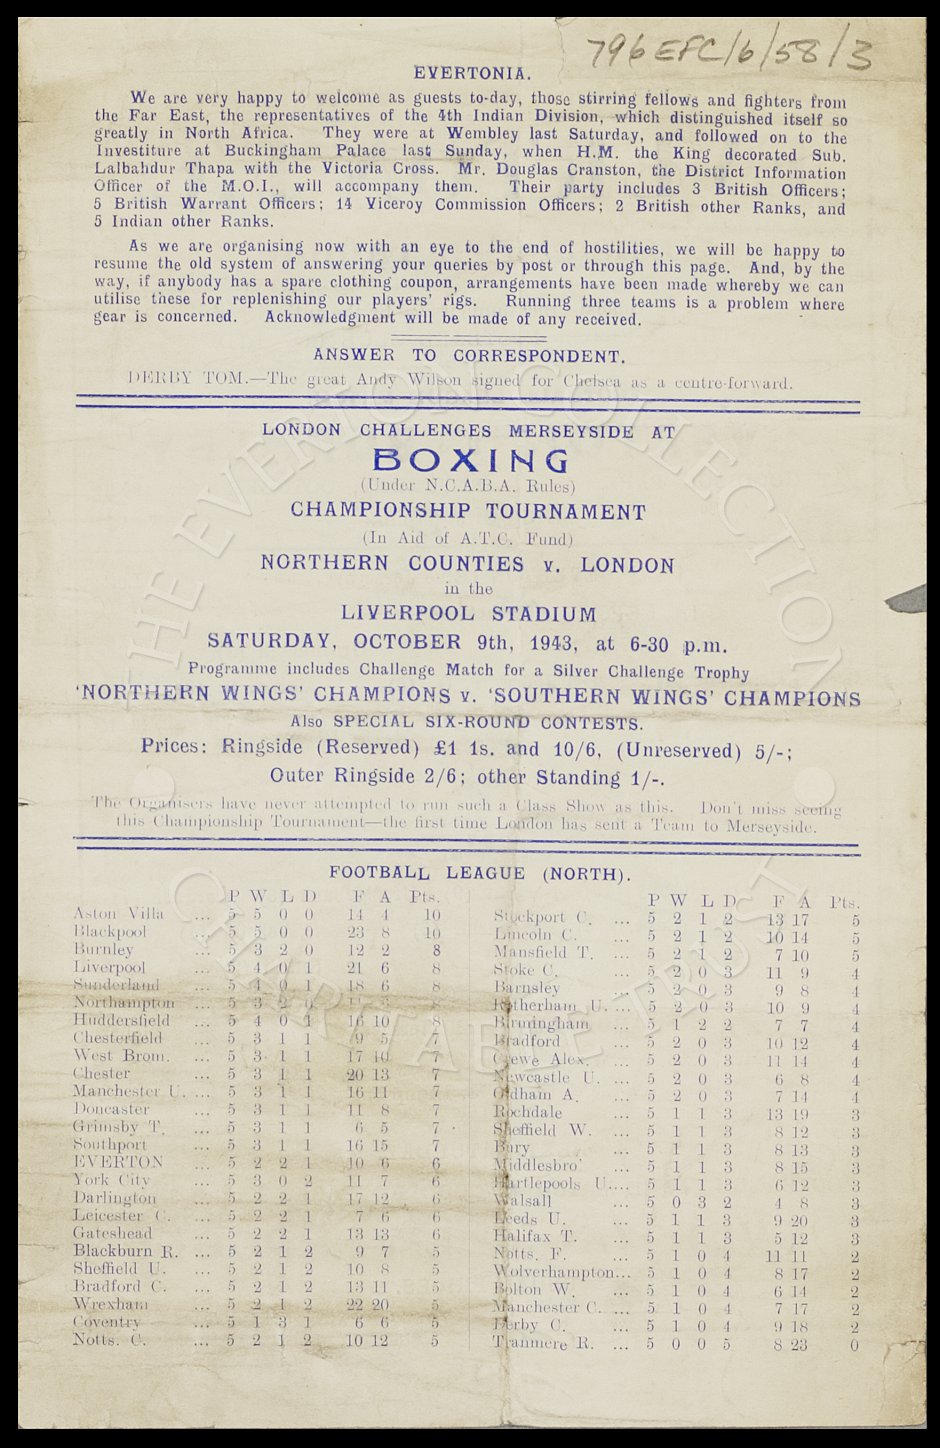 796 EFC/6/58/3
EVERTONIA.
We are very happy to welcome as guests to-day, those stirring fellows and fighters from
the Far East, the representatives of the 4th Indian Division, which distinguished itself so
greatly in North Africa. They were at Wembley last Saturday, and followed on to the
Investiture at Buckingham Palace last Sunday, when H.M. the King decorated Sub.
Lalbahdur Thapa with the Victoria Cross. Mr. Douglas Cranston, the District Information
Officer of the M.O.I., will accompany them. Their party includes 3 British Officers;
5 British Warrant Officers; 14 Viceroy Commission Officers; 2 British other Ranks, and
5 Indian other Ranks.
As we are organising now with an eye to the end of hostilities, we will be happy to
resume the old system of answering your queries by post or through this page. And, by the
way, if anybody has a spare clothing coupon, arrangements have been made whereby we can
utilise these for replenishing our players' rigs. Running three teams is a problem where
gear is concerned. Acknowledgment will be made of any received.
ANSWER TO CORRESPONDENT.
DERBY TOM.—The great Andy Wilson signed for Chelsea as a centre-forward.
LONDON CHALLENGES MERSEYSIDE AT
BOXING
(Under N.C.A.B.A. Rules)
CHAMPIONSHIP TOURNAMENT
(In Aid of A.T.C. Fund)
NORTHERN COUNTIES v. LONDON
in the
LIVERPOOL STADIUM
SATURDAY, OCTOBER 9th, 1943, at 6-30 p.m.
Programme includes Challenge Match for a Silver Challenge Trophy
'NORTHERN WINGS' CHAMPIONS v. 'SOUTHERN WINGS' CHAMPIONS
Also SPECIAL SIX-ROUND CONTESTS.
Prices: Ringside (Reserved) £1 1s. and 10/6, (Unreserved) 5/-;
Outer Ringside 2/6; other Standing 1/-.
The Organisers have never attempted to run such a Class Show as this. Don't miss seeing
this Championship Tournament—the first time London has sent a Team to Merseyside.
FOOTBALL LEAGUE (NORTH).
P W L D F A Pts.
Aston Villa ... 5 5 0 0 14 4 10
Blackpool ... 5 5 0 0 23 8 10
Burnley ... 5 3 2 0 12 2 8
Liverpool ... 5 4 0 1 21 6 8
Sunderland ... 5 4 0 1 18 6 8
Northampton ... 5 3 2 0 8
Huddersfield ... 5 4 0 1 16 10 8
Chesterfield ... 5 3 1 1 9 5 7
West Brom. ... 5 3 1 1 17 10 7
Chester ... 5 3 1 1 20 13 7
Manchester U. ... 5 3 1 1 16 11 7
Doncaster ... 5 3 1 1 11 8 7
Grimsby T. ... 5 3 1 1 6 5 7
Southport ... 5 3 1 1 16 15 7
EVERTON ... 5 2 2 1 10 6 6
York City ... 5 3 0 2 11 7 6
Darlington ... 5 2 2 1 17 12 6
Leicester C. ... 5 2 2 1 7 6 6
Gateshead ... 5 2 2 1 13 13 6
Blackburn R. ... 5 2 1 2 9 7 5
Sheffield U. ... 5 2 1 2 10 8 5
Bradford C. ... 5 2 1 2 13 11 5
Wrexham ... 5 2 1 2 22 20 5
Coventry ... 5 1 3 1 6 6 5
Notts. C. ... 5 2 1 2 10 12 5
P W L D F A Pts.
Stockport C. ... 5 2 1 2 13 17 5
Lincoln C. ... 5 2 1 2 10 14 5
Mansfield T. ... 5 2 1 2 7 10 5
Stoke C. ... 5 2 0 3 11 9 4
Barnsley ... 5 2 0 3 9 8 4
Rotherham U. ... 5 2 0 3 10 9 4
Birmingham ... 5 1 2 2 7 7 4
Bradford ... 5 2 0 3 10 12 4
Crewe Alex. ... 5 2 0 3 11 14 4
Newcastle U. ... 5 2 0 3 6 8 4
Oldham A. ... 5 2 0 3 7 14 4
Rochdale ... 5 1 1 3 13 19 3
Sheffield W. ... 5 1 1 3 8 12 3
Bury ... 5 1 1 3 8 13 3
Middlesbro' ... 5 1 1 3 8 15 3
Hartlepools U.... 5 1 1 3 6 12 3
Walsall ... 5 0 3 2 4 8 3
Leeds U. ... 5 1 1 3 9 20 3
Halifax T. ... 5 1 1 3 5 12 3
Notts. F. ... 5 1 0 4 11 11 2
Wolverhampton... 5 1 0 4 8 17 2
Bolton W. ... 5 1 0 4 6 14 2
Manchester C. ... 5 1 0 4 7 17 2
Derby C. ... 5 1 0 4 9 18 2
Tranmere R. ... 5 0 0 5 8 23 0
THE EVERTON COLLECTION
CHARITABLE TRUST